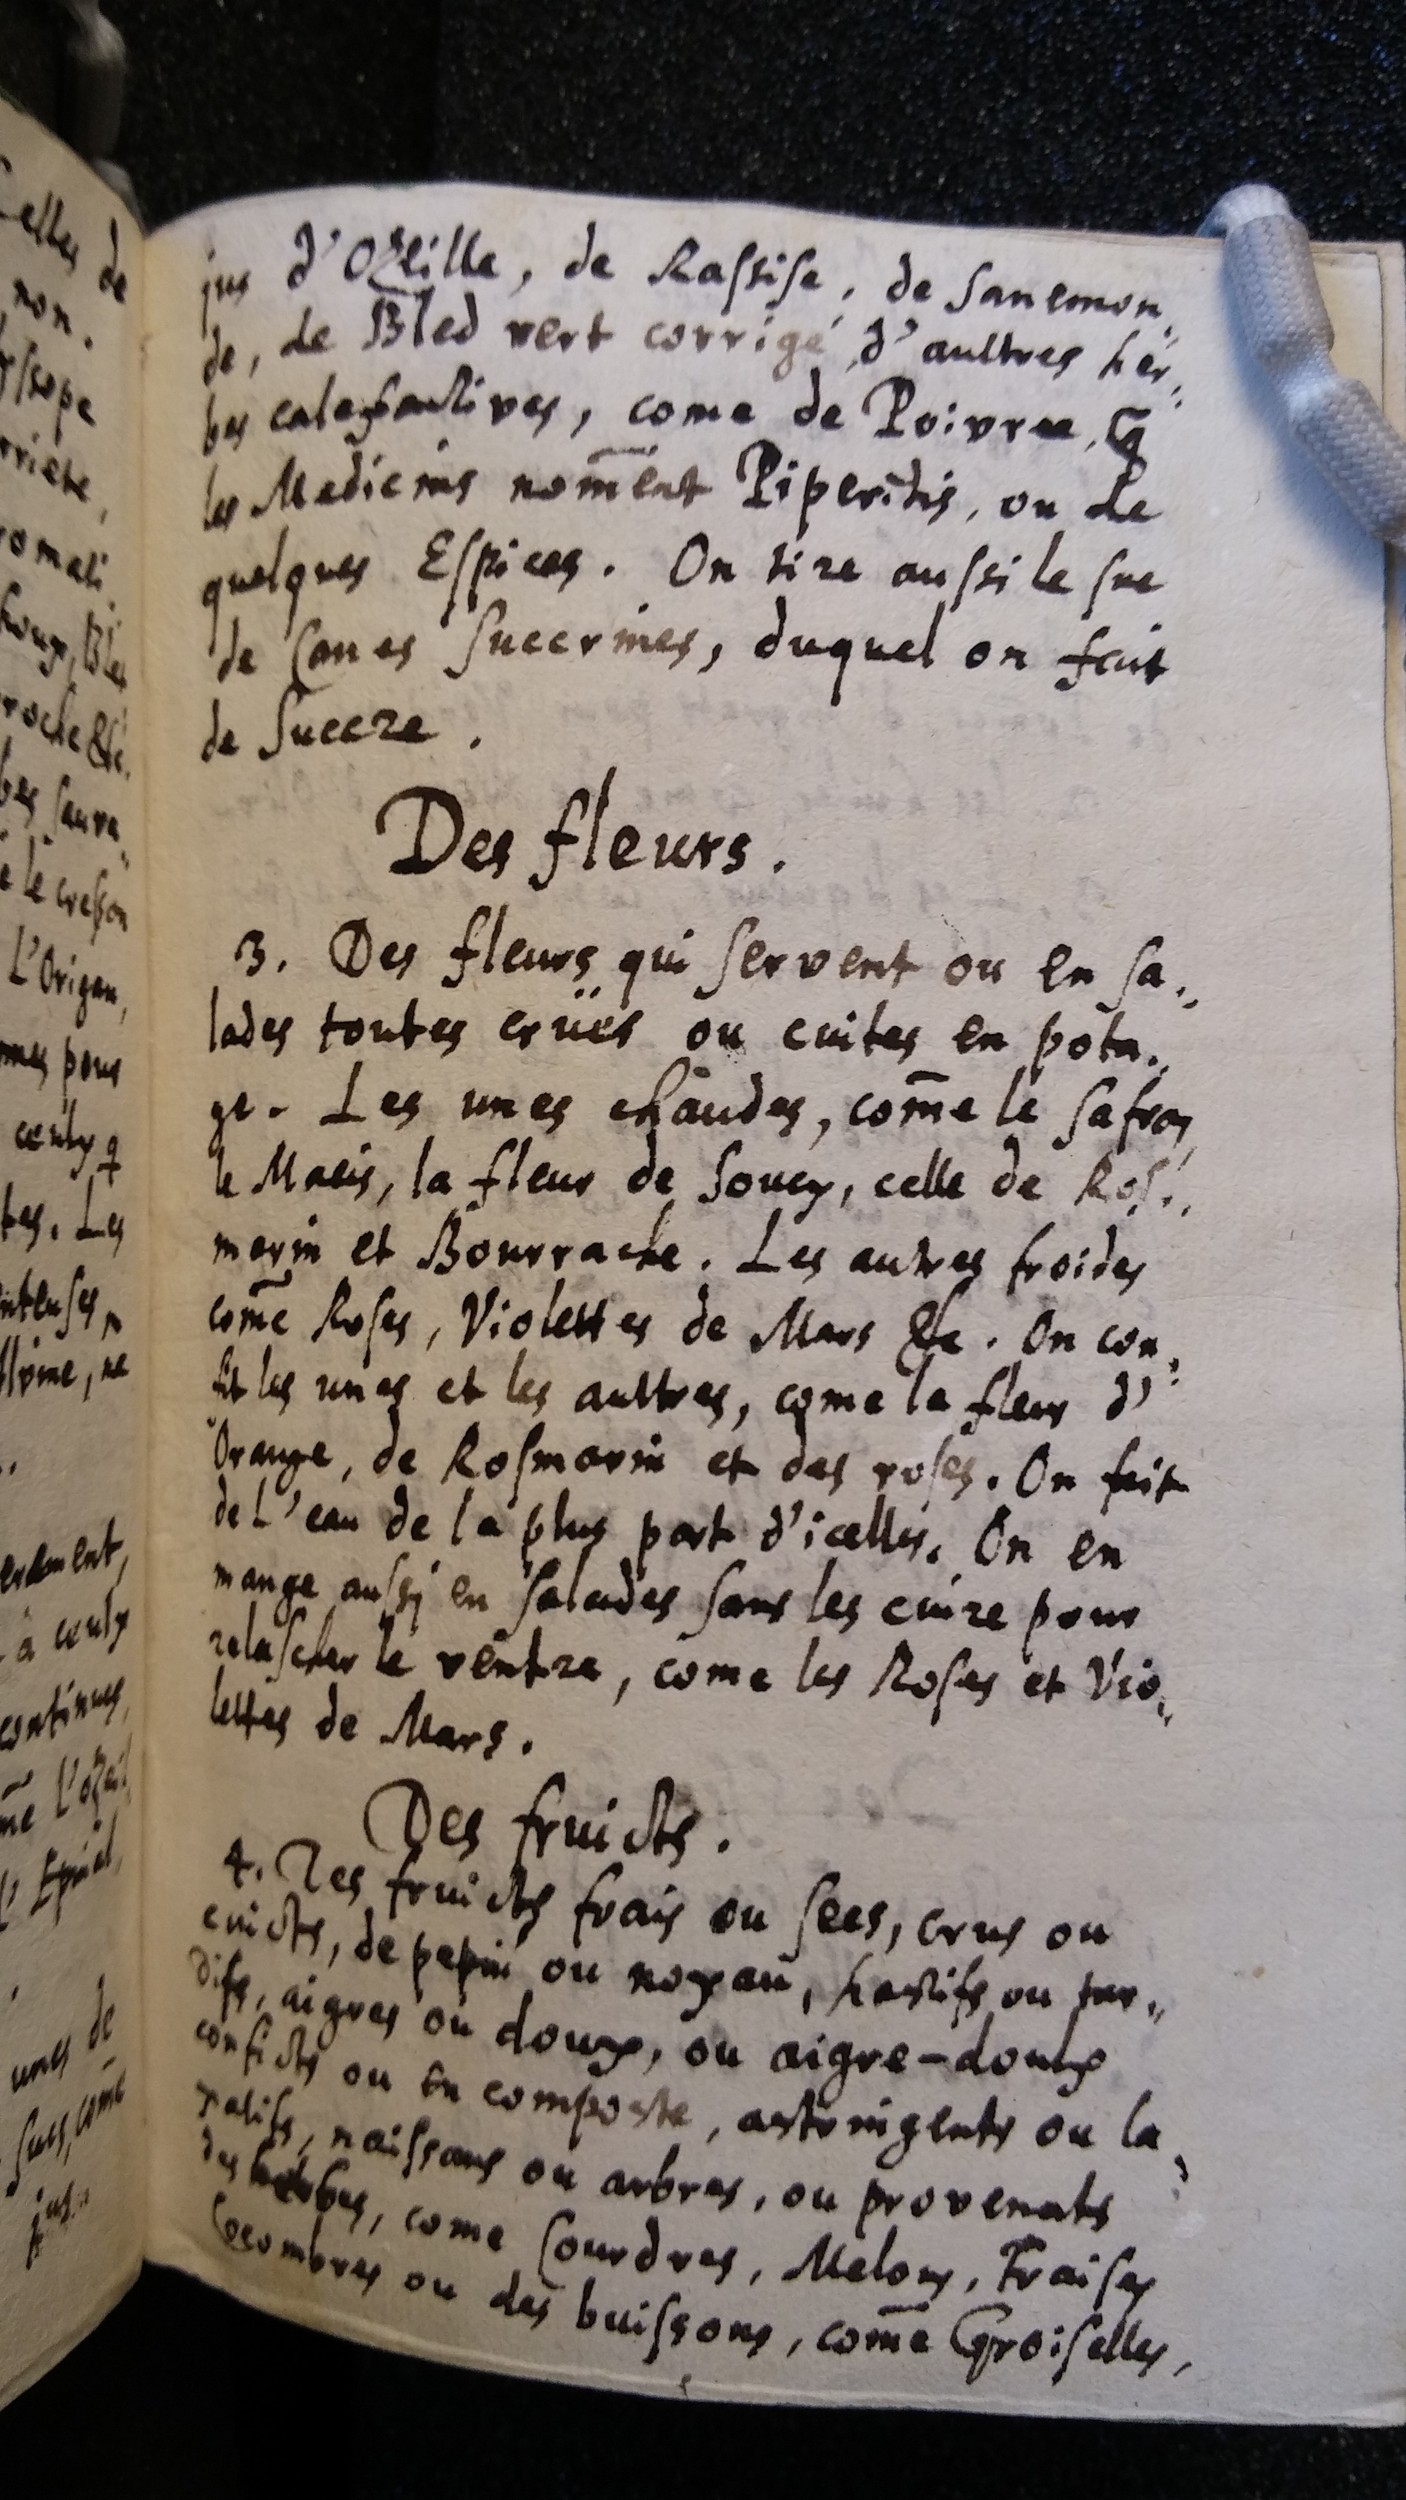 elles de
non.
ssope
rriete,
omati
roche &c.
bes sauva
e le cresson
L'Origan,
mes pour
ceulx q̃
tes. Les
erement,
à ceulx
continues,
unes de
sucs, come
jus
jus d'Ozeille, de Rassise, de Sanemon„
de, de Bled vert corrigé d'aultres her„
bes calefactives, come de Poivree, q̃
les Medicins nom̄ent Piperitis, ou de
quelques Espices. On tire aussi le suc
de Canes Succrines, duquel on fait
de Succre.
Des fleurs.
3. Des fleurs qui servent ou en sa„
lades toutes crües ou cuites en pota„
ge. Les unes chaudes, com̄e le Safran,
le Macis, la fleur de Soucy, celle de Ros„
marin et Bourrache. Les autres froides
com̄e Roses, Violettes de Mars &c. On con„
fit les unes et les aultres, come la fleur d'
Orange, de Rosmarin et des roses. On fait
de L'eau de la plus part d'icelles. On en
mange aussj en Salades sans les cuire pour
relascher le ventre, come les Roses et Vio„
lettes de Mars.
Des fruicts.
4. Des fruicts frais ou secs, crus ou
cuicts, de pepin ou noyau, hastifs ou tar„
difs, aigres ou doux, ou aigre-doulx
conficts ou en composte, astringents ou la„
xatifs, naissans ou arbres, ou provenats
des herbes, come Courdres, Melons, Fraises
Cocombres ou des buissons, com̄e Groiselles,